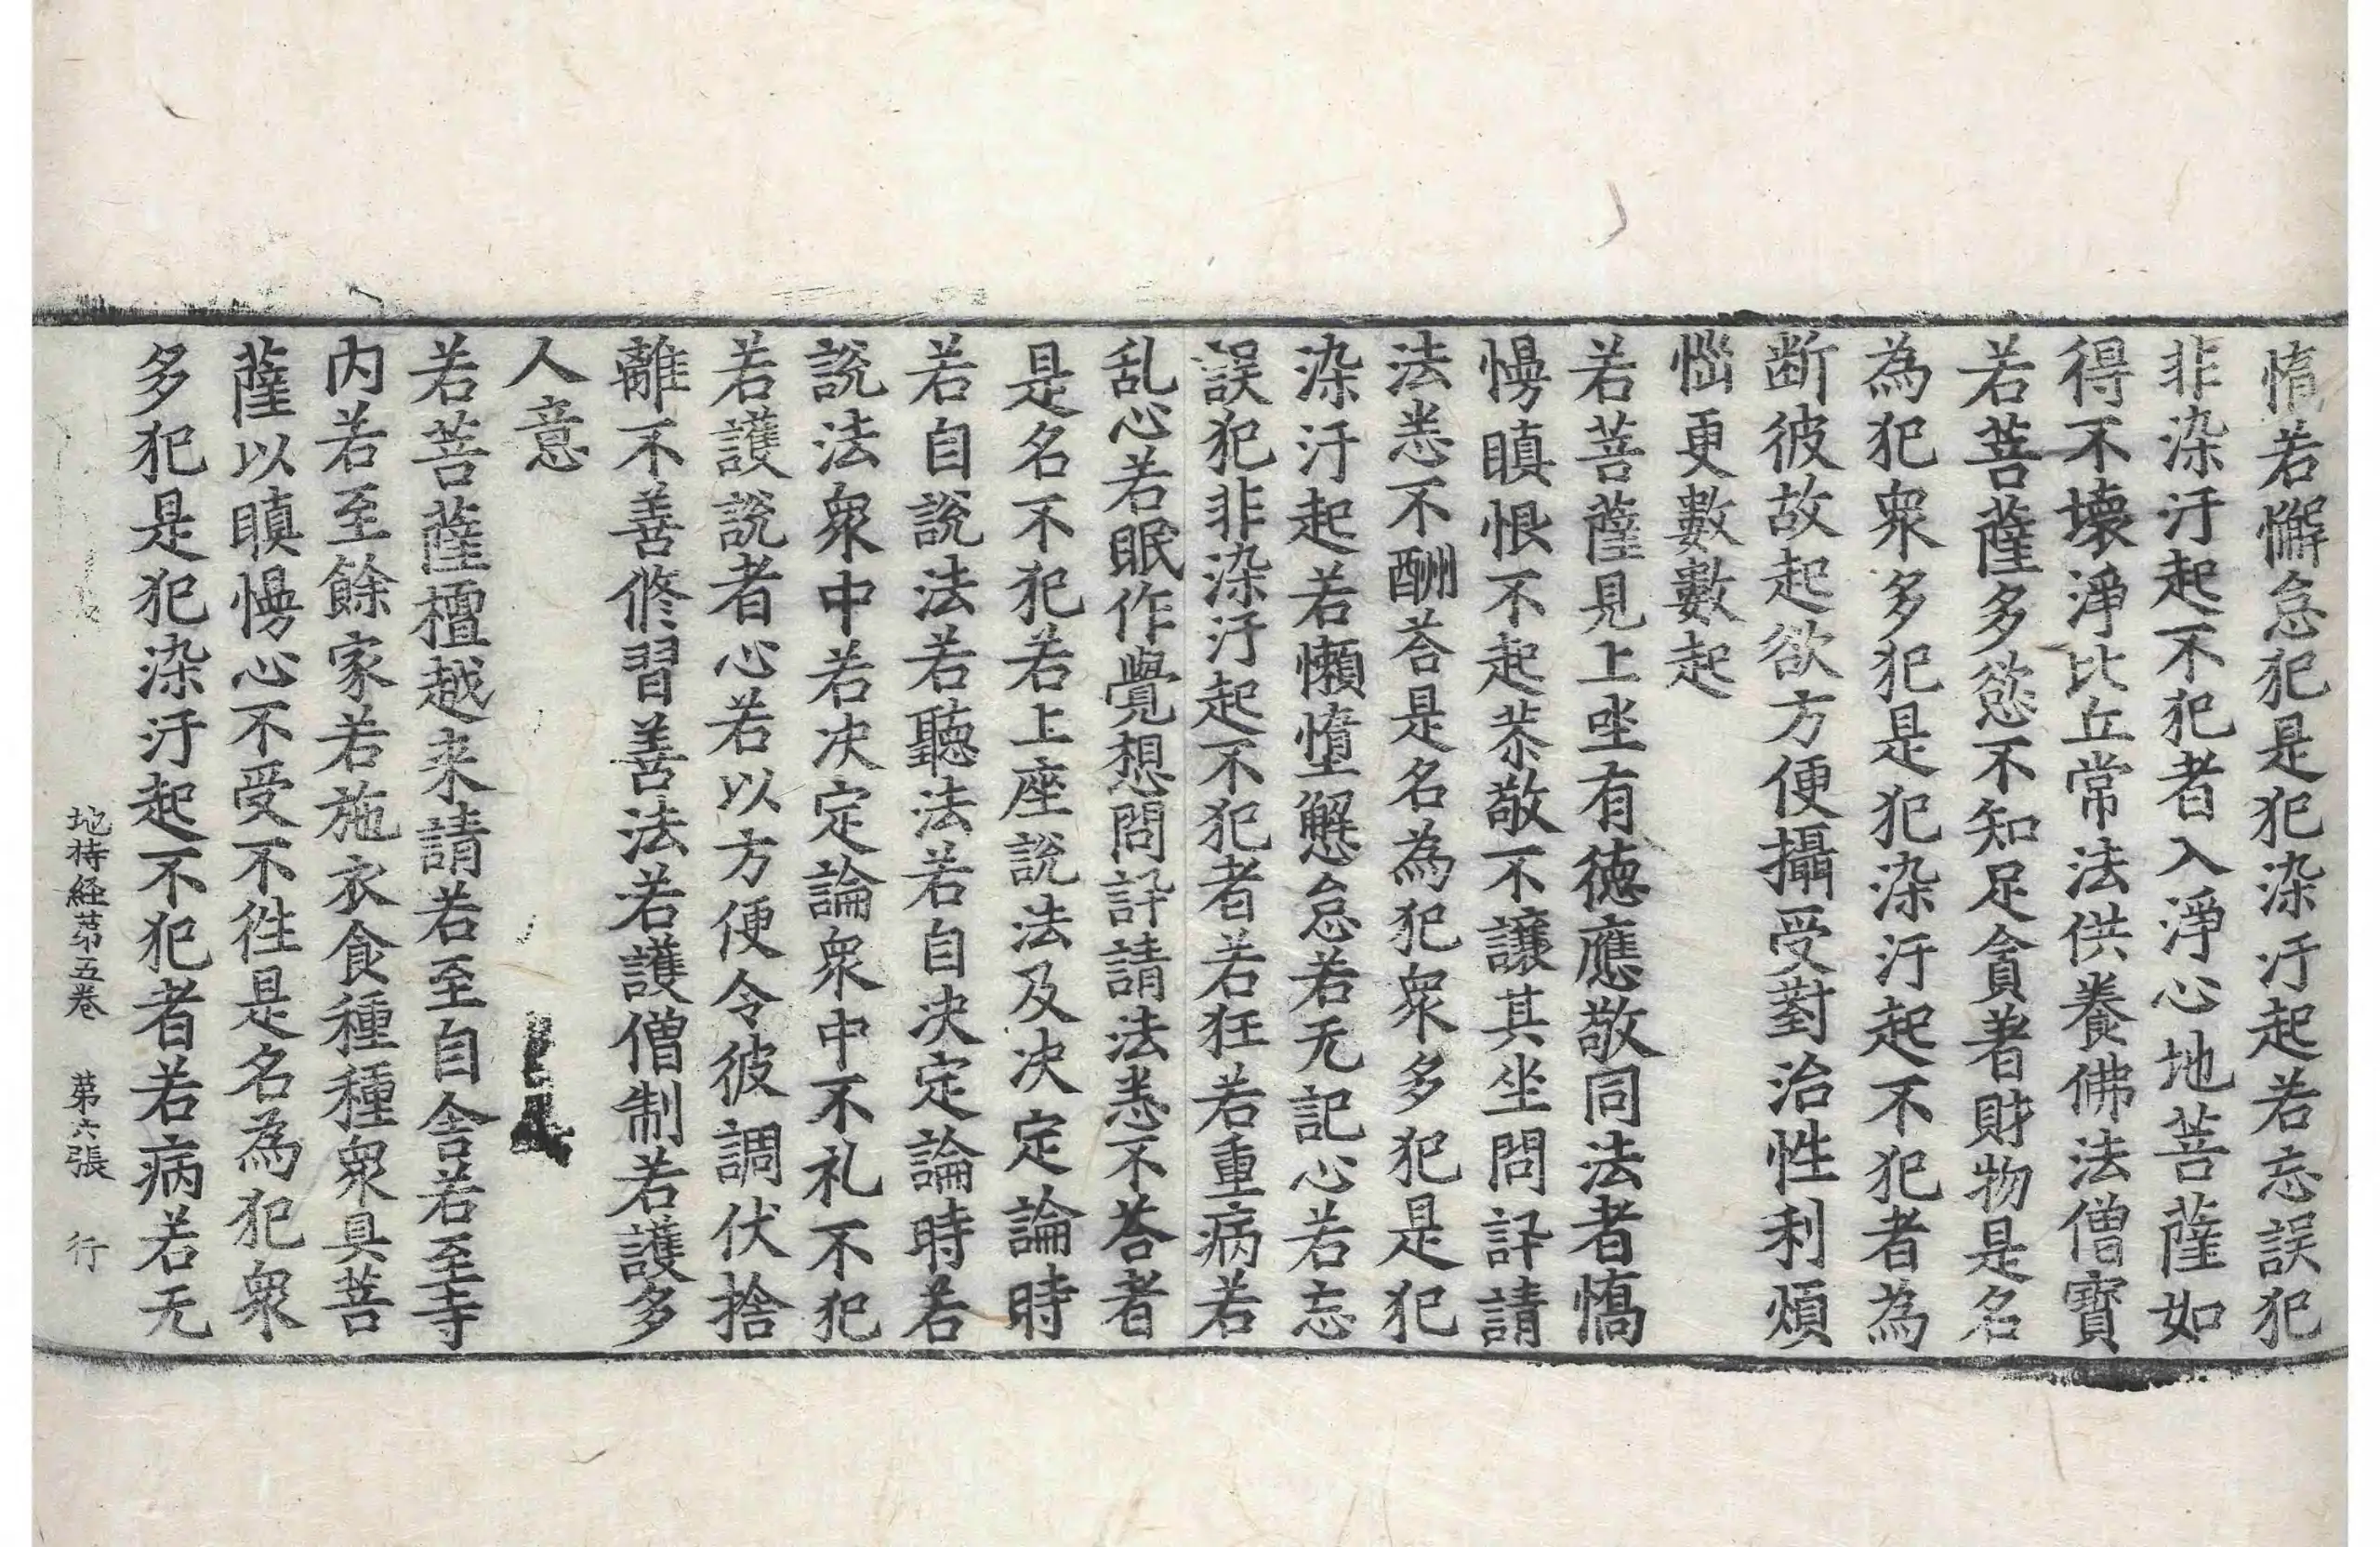 惰若懈怠犯是犯染汙起若忘誤犯
非染汙起不犯者入淨心地菩薩如
得不壞淨比丘常法供養佛法僧寶
若菩薩多慾不知足貪著財物是名
為犯衆多犯是犯染汙起不犯者為
断彼故起欲方便攝受對治性利煩
惱更數數起
若菩薩見上坐有德應敬同法者憍
慢瞋恨不起恭敬不讓其坐問訊請
法悉不酬荅是名為犯衆多犯是犯
染汙起若懶惰懈怠若无記心若忘
誤犯非染汙起不犯者若狂若重病若
乱心若眠作覺想問訊請法悉不荅者
是名不犯若上座說法及决定論時
若自說法若聽法若自决定論時若
說法衆中若决定論衆中不礼不犯
若護說者心若以方便令彼調伏捨
離不善修習善法若護僧制若護多
人意
若菩薩檀越来請若至自舍若至寺
内若至餘家若施衣食種種衆具菩
薩以瞋慢心不受不徃是名為犯衆
多犯是犯染汙起不犯者若病若无
地持経苐五卷 苐六張 行